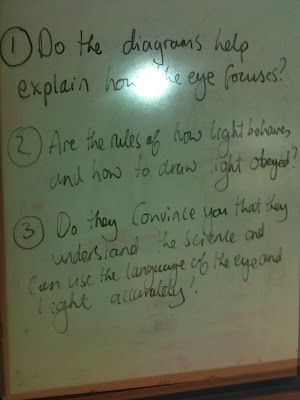 ① Do the diagrams help
explain how the eye focuses?
② Are the rules of how light behaves
and how to draw light obeyed?
③ Do they convince you that they
understand the science and
can use the language of the eye and
light accurately?